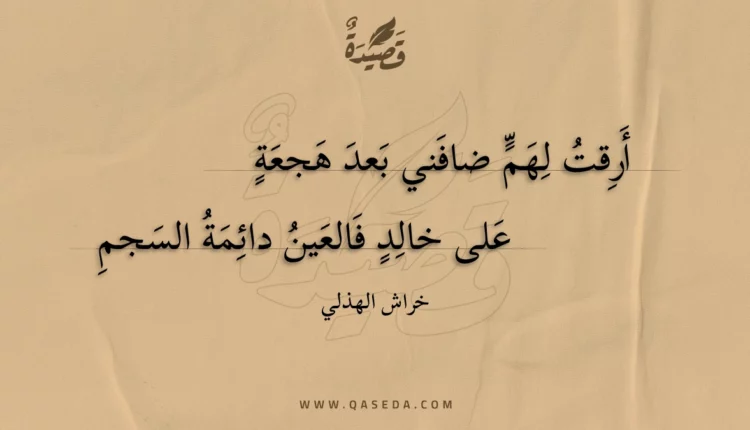 قَصِيْدَةٌ
أَرِقتُ لِهَمٍّ ضافَني بَعدَ هَجعَةٍ
عَلى خالِدٍ فَالعَينُ دائِمَةُ السَجمِ
خراش الهذلي
WWW.QASEDA.COM